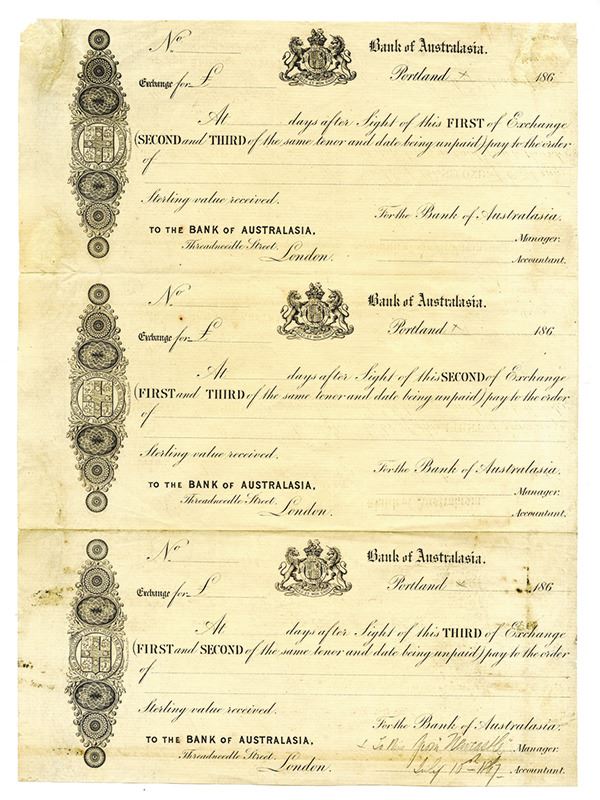 No
Bank of Australasia.
Exchange for £
Portland 186
At days after Sight of this FIRST of Exchange
(SECOND and THIRD of the same tenor and date being unpaid) pay to the order
of
Sterling value received.
For the Bank of Australasia.
TO THE BANK OF AUSTRALASIA,
Manager.
Threadneedle Street,
London.
Accountant.
No
Bank of Australasia.
Exchange for £
Portland 186
At days after Sight of this SECOND of Exchange
(FIRST and THIRD of the same tenor and date being unpaid) pay to the order
of
Sterling value received.
For the Bank of Australasia.
TO THE BANK OF AUSTRALASIA,
Manager.
Threadneedle Street,
London.
Accountant.
No
Bank of Australasia.
Exchange for £
Portland 186
At days after Sight of this THIRD of Exchange
(FIRST and SECOND of the same tenor and date being unpaid) pay to the order
of
Sterling value received.
For the Bank of Australasia.
TO THE BANK OF AUSTRALASIA,
Newcastle Manager.
Threadneedle Street,
London.
July 18 1867 Accountant.